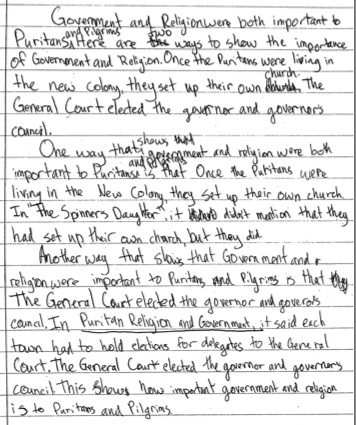 Government and Religion were both important to
Puritans and Pilgrims. Here are two ways to show the importance
of Government and Religion. Once the Puritans were living in
the new colony, they set up their own church. The
General Court elected the governor and governors
council.
One way that shows that government and religion were both
important to Puritans and Pilgrims is that Once the Puritans were
living in the New Colony they set up their own church.
In "The Spinners Daughter", it didn't mention that they
had set up their own church, but they did.
Another way that shows that Government and
religion were important to Puritans and Pilgrims is that
The General Court elected the governor and goverors
council. In Puritan Religion and Government, it said each
town had to hold elections for delegates to the General
Court. The General Court elected the governor and governors
council. This shows how important government and religion
is to Puritans and Pilgrims.